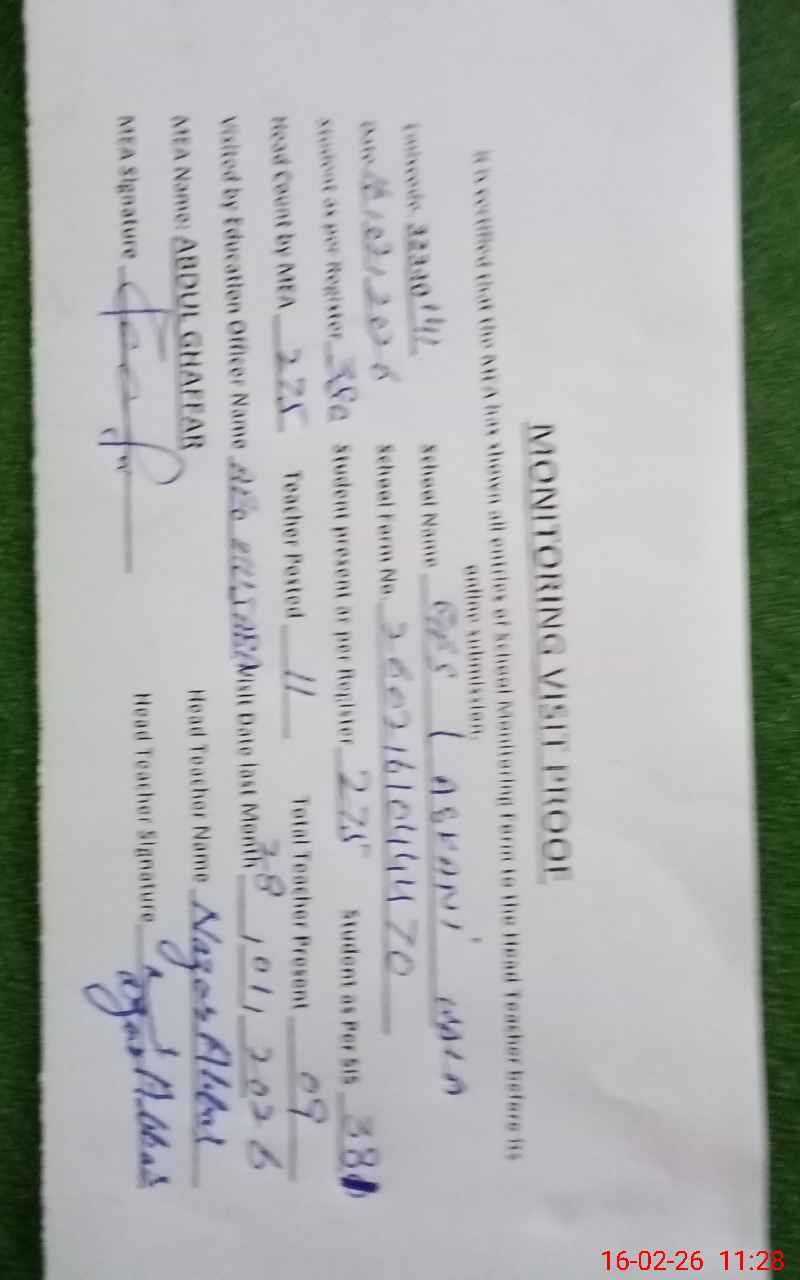 MONITORING VISIT PROOF
It is certified that the MEA has shown all entries of School Monitoring Form to the Head Teacher before its
online submission.
Emiscode 32340141 School Name GPS LASHARI WALA
Date 16/02/2026 School Form No. 2602161044470
Student as per Register 380 Student present as per Register 275 Student as Per SIS 381
Head Count by MEA 275 Teacher Posted 11 Total Teacher Present 09
Visited by Education Officer Name AEO Visit Date last Month 28/01/2026
MEA Name: ABDUL GHAFFAR Head Teacher Name Abbas
MEA Signature Head Teacher Signature Abbas
16-02-26 11:28